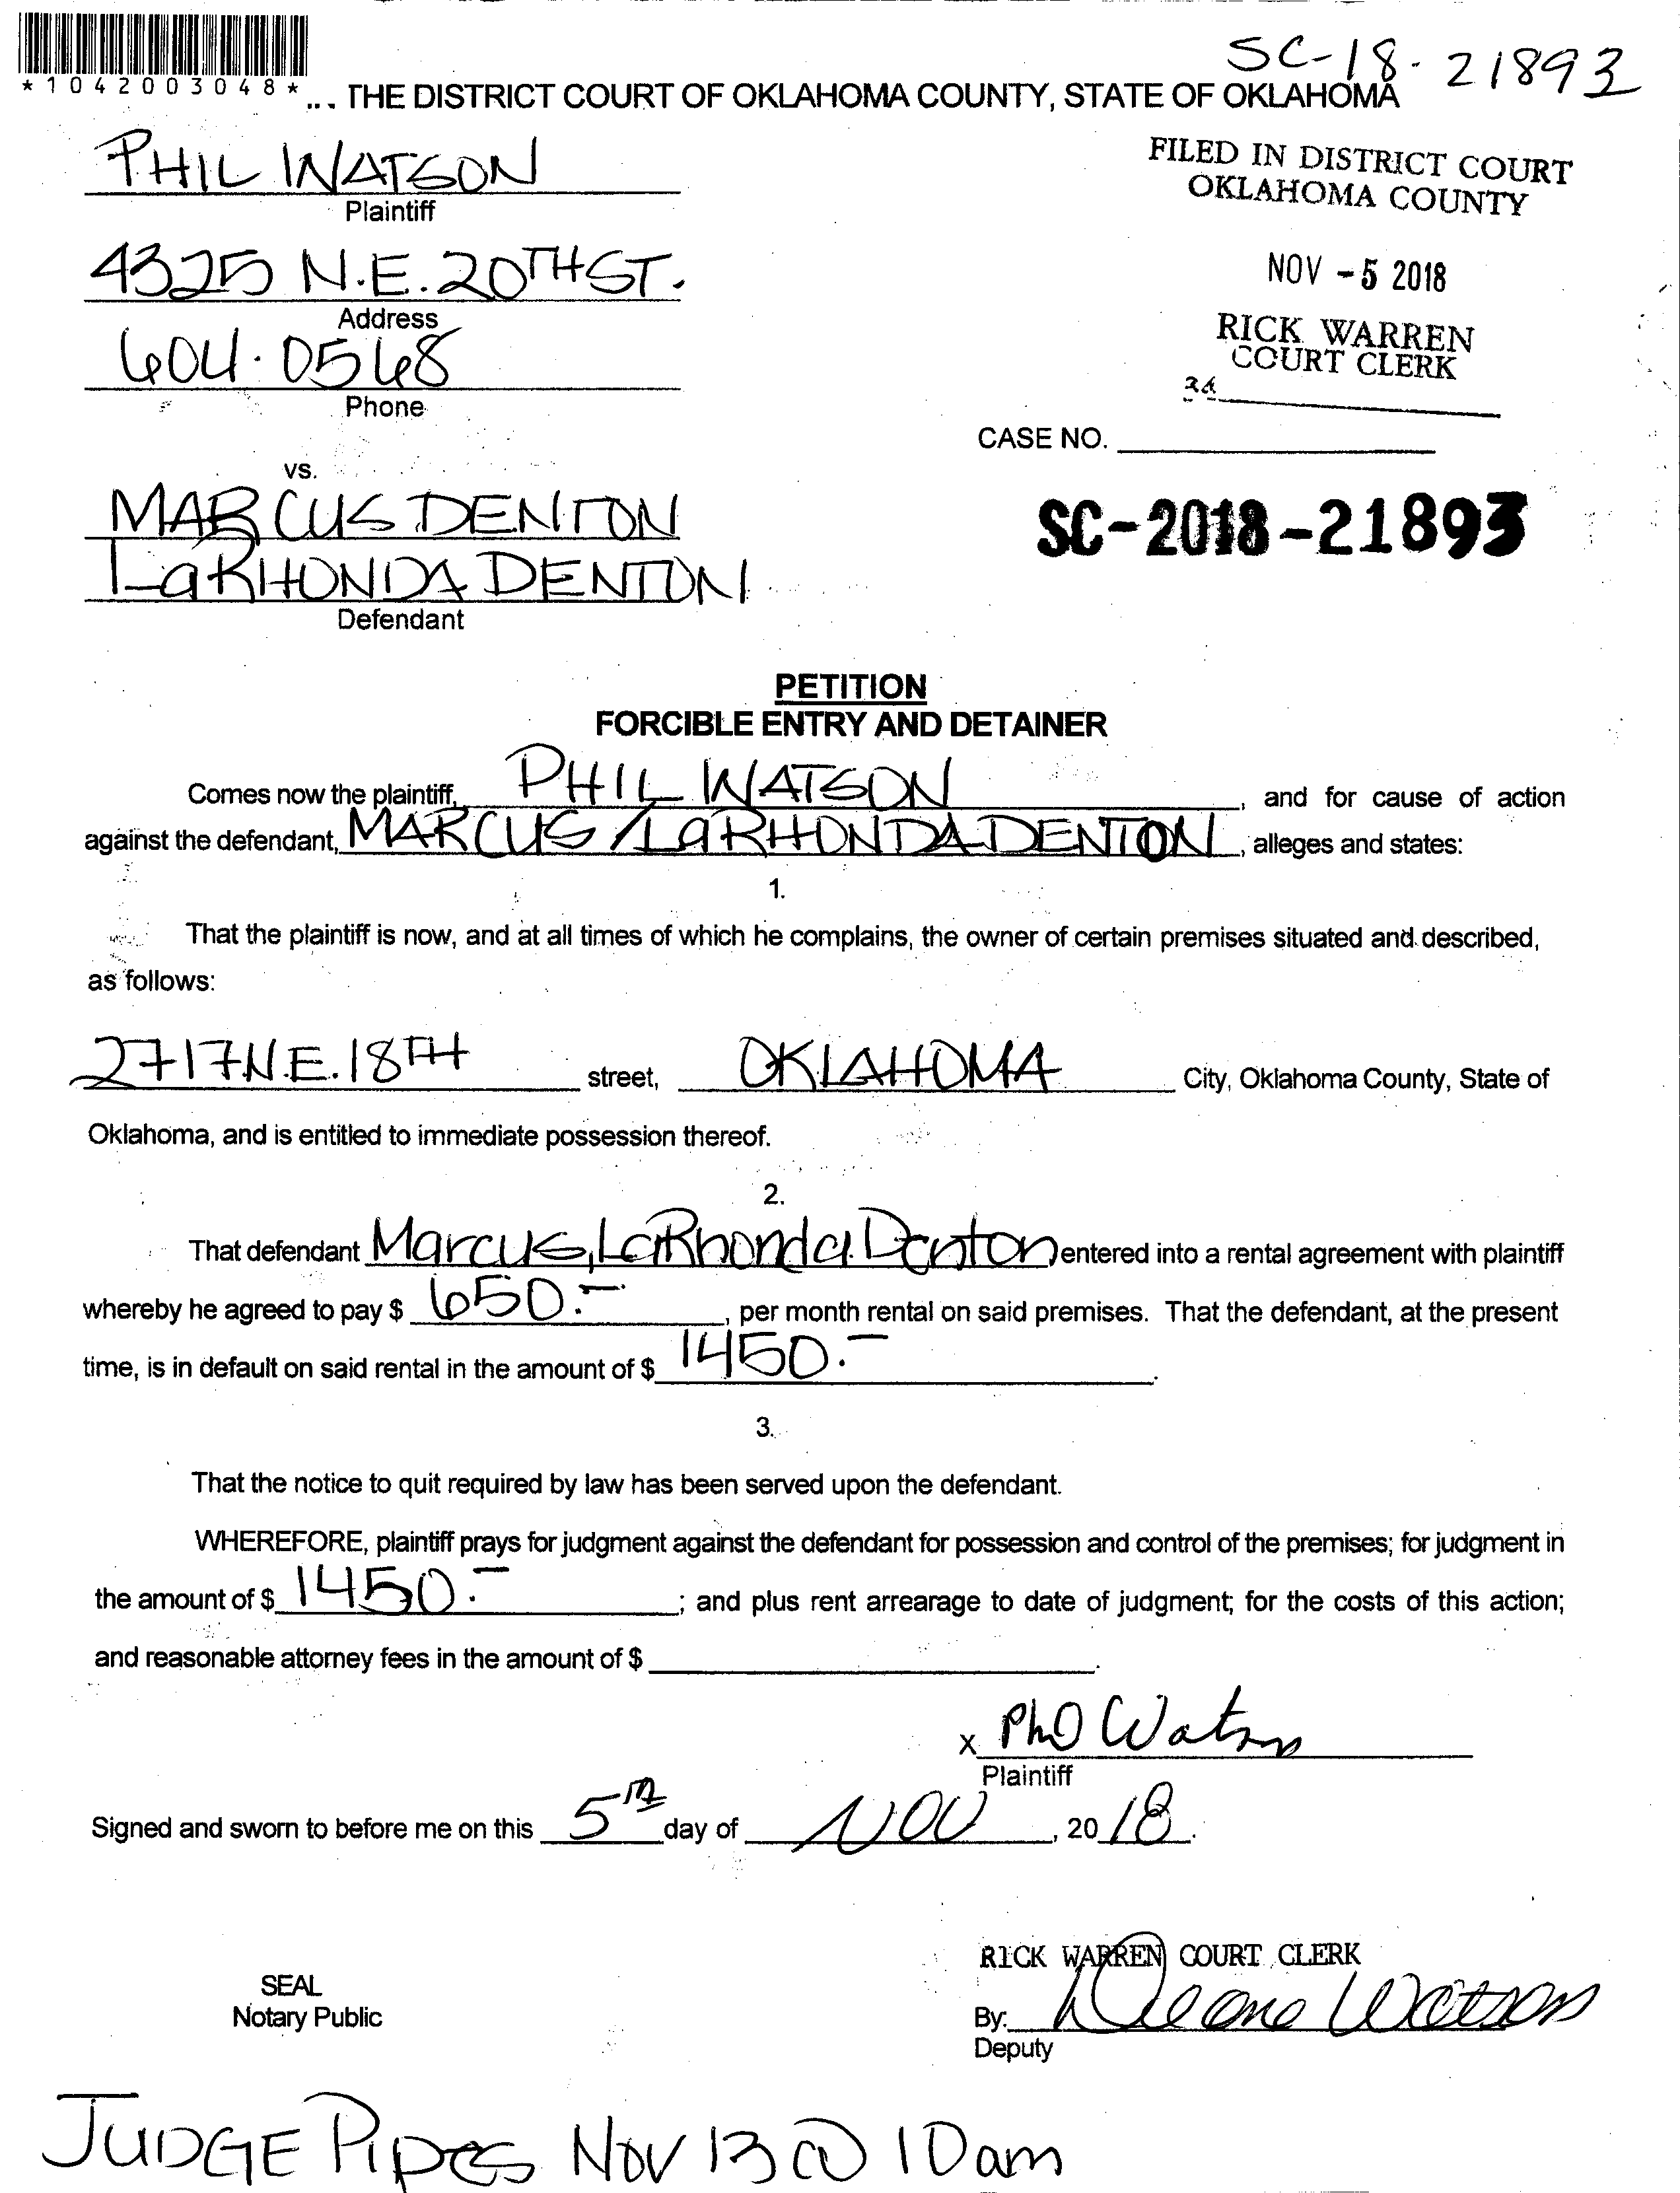 SC-18-21893
*1042003048*
THE DISTRICT COURT OF OKLAHOMA COUNTY, STATE OF OKLAHOMA
PHIL WATSON
Plaintiff
4325 N.E. 20TH ST.
Address
604.0568
Phone
FILED IN DISTRICT COURT
OKLAHOMA COUNTY
NOV -5 2018
RICK WARREN
COURT CLERK
CASE NO.
vs.
MARCUS DENTON
LaRHONDA DENTON
Defendant
SC-2018-21893
PETITION
FORCIBLE ENTRY AND DETAINER
Comes now the plaintiff, PHIL WATSON, and for cause of action
against the defendant, MARCUS/LaRHONDA DENTON, alleges and states:
1.
That the plaintiff is now, and at all times of which he complains, the owner of certain premises situated and described,
as follows:
2717 N.E. 18TH street, OKLAHOMA City, Oklahoma County, State of
Oklahoma, and is entitled to immediate possession thereof.
2.
That defendant Marcus, LaRhonda Denton entered into a rental agreement with plaintiff
whereby he agreed to pay $ 650.-, per month rental on said premises. That the defendant, at the present
time, is in default on said rental in the amount of $ 1450.-.
3.
That the notice to quit required by law has been served upon the defendant.
WHEREFORE, plaintiff prays for judgment against the defendant for possession and control of the premises; for judgment in
the amount of $ 1450.-; and plus rent arrearage to date of judgment; for the costs of this action;
and reasonable attorney fees in the amount of $
x Phil Watson
Plaintiff
Signed and sworn to before me on this 5th day of NOV, 2018.
RICK WARREN COURT CLERK
SEAL
Notary Public
By: Watson
Deputy
JUDGE PIPES NOV 13 @ 10am